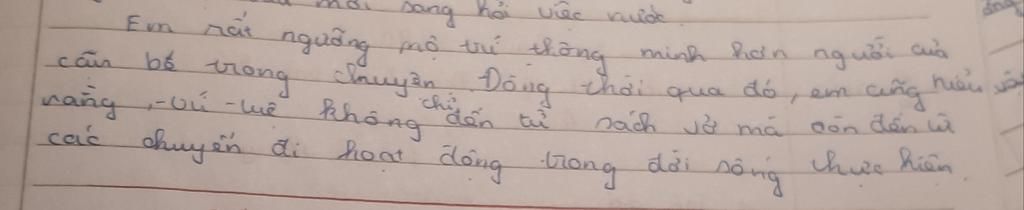 sang hỏi việc nước.
Em rất ngưỡng mộ trí thông minh hơn người của
cậu bé trong chuyện. Đồng thời qua đó, em cũng hiểu
rằng, trí tuệ không chỉ đến từ sách vở mà còn đến từ
các chuyến đi hoạt động trong đời sống thực hiện.